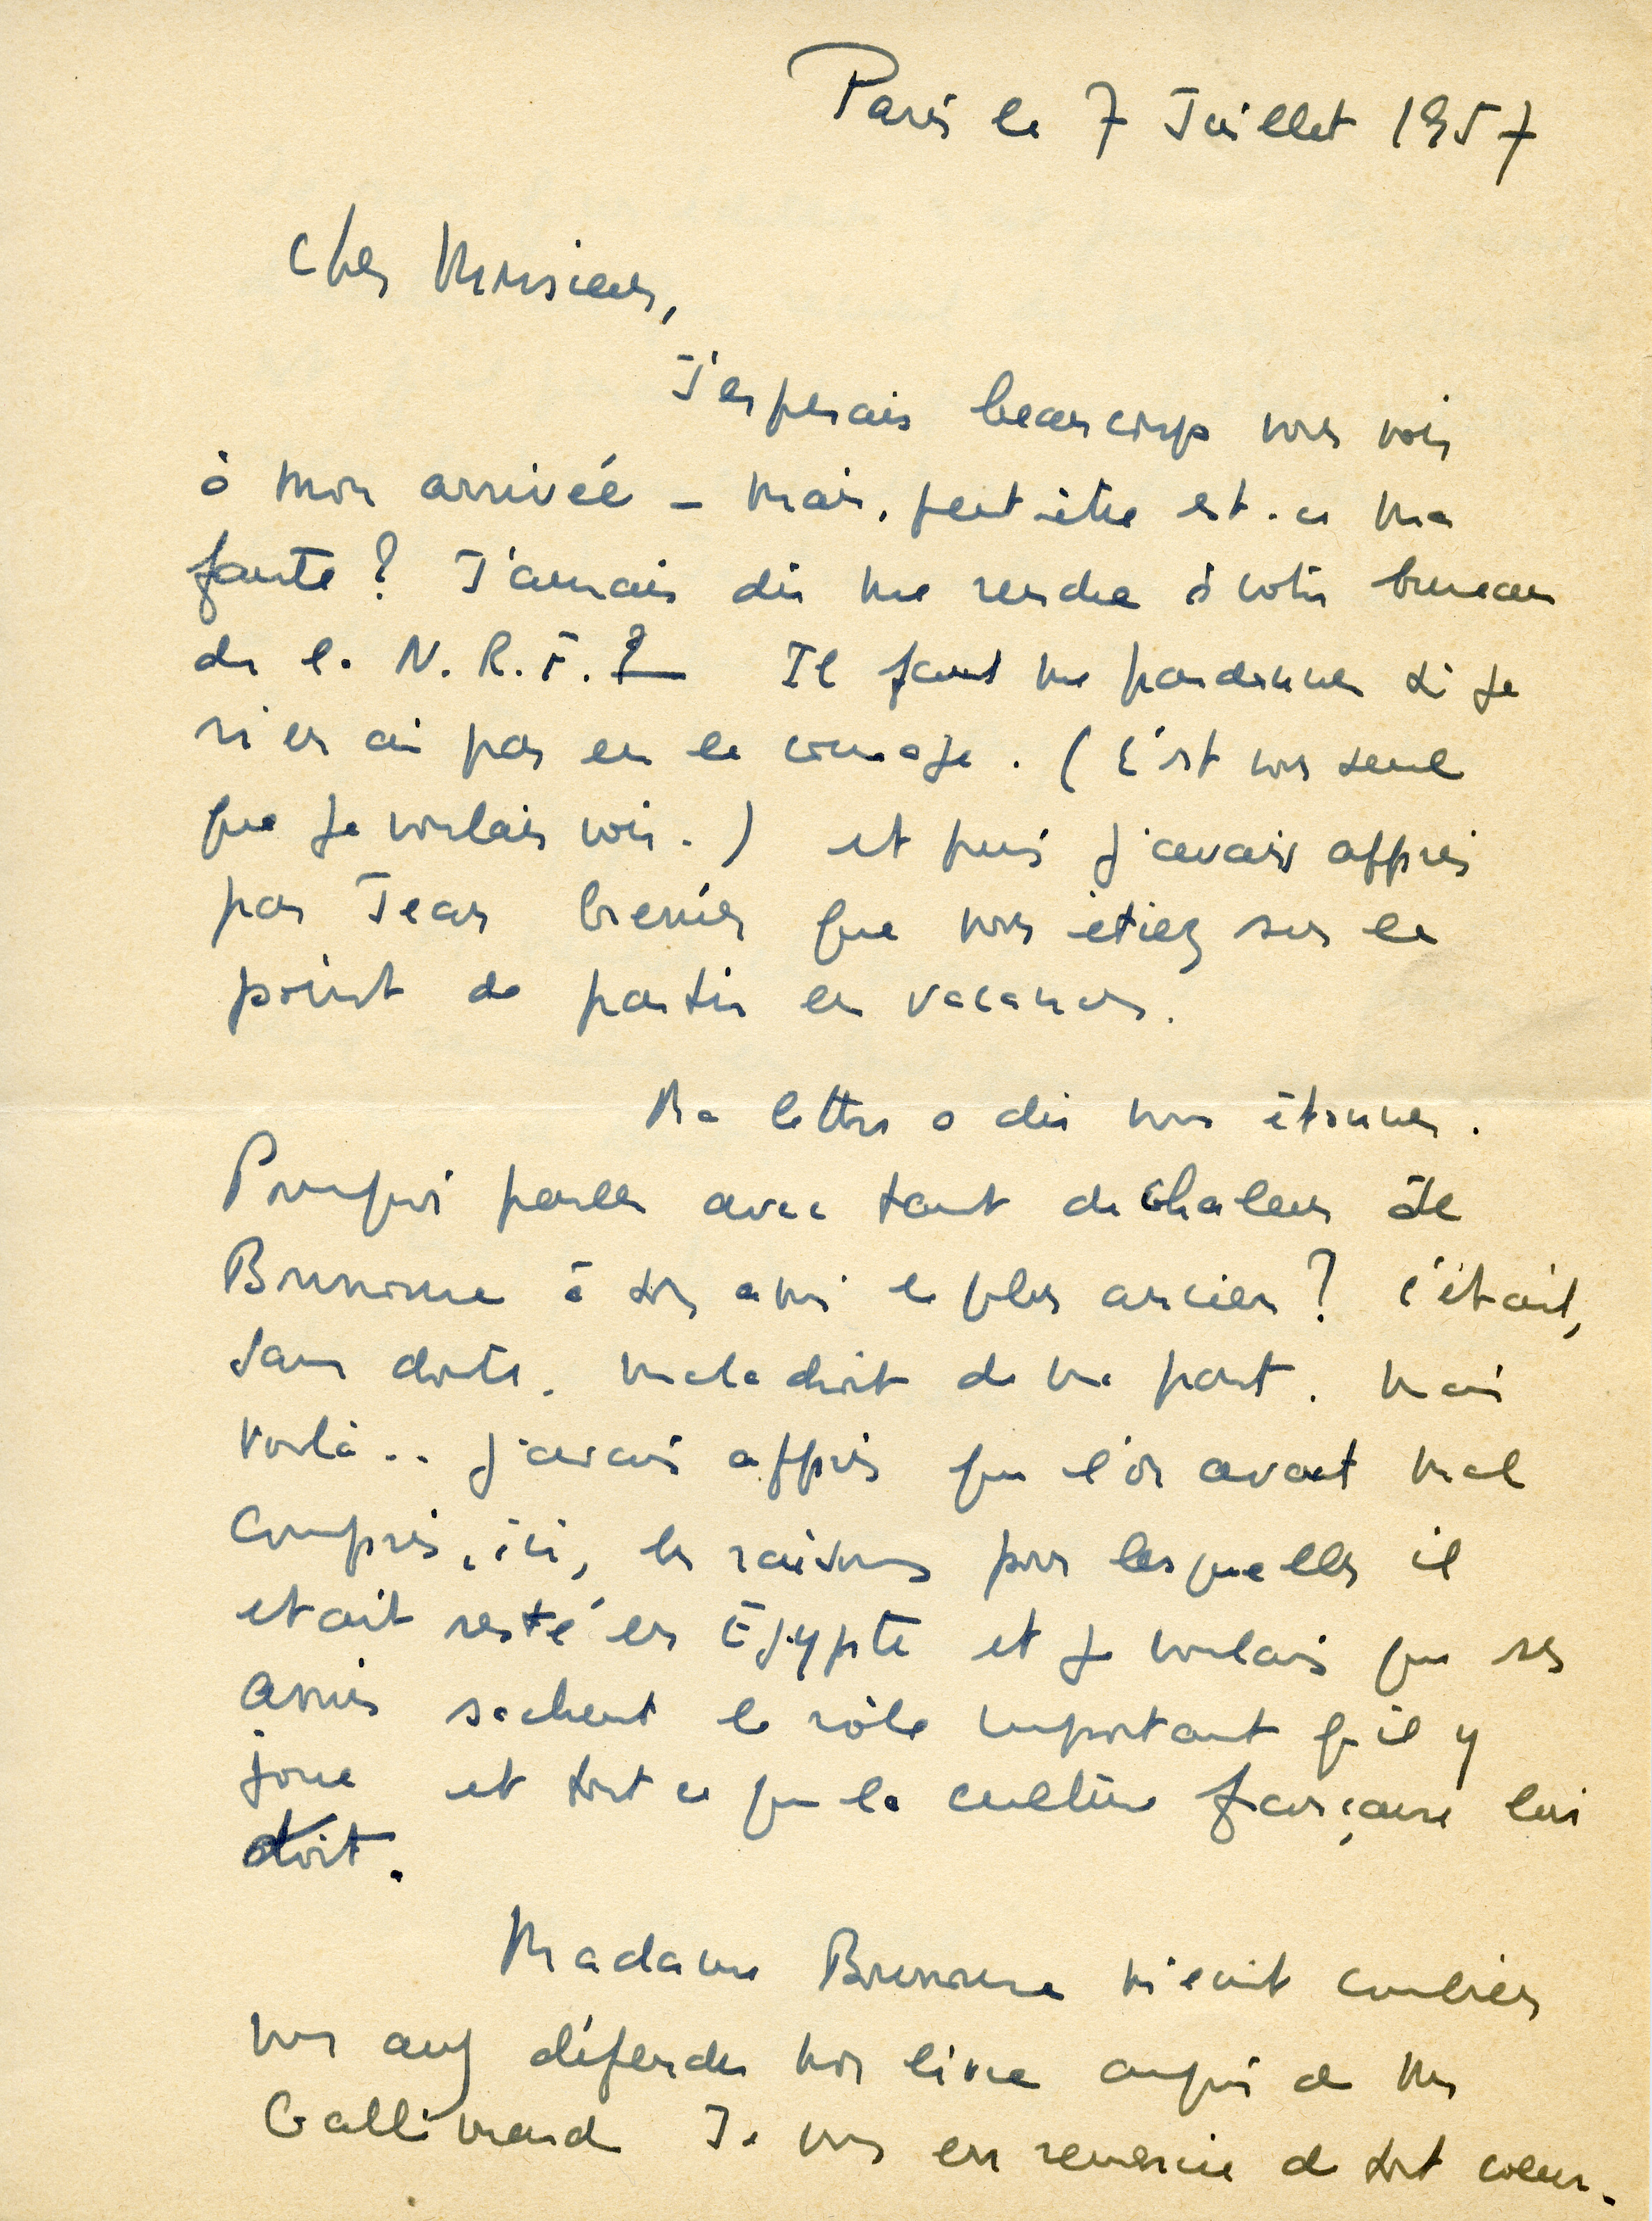 Paris le 7 Juillet 1957
Cher Monsieur,
J'esperais beaucoup vous voir
à mon arrivée – mais, peut-être est-ce ma
faute ? J'aurais dû me rendre à votre bureau
de la N.R.F. ? Il faut me pardonner si je
n'en ai pas eu le courage. (C'est vous seul
que je voulais voir.) et puis j'avais appris
par Jean Grenier que vous étiez sur le
point de partir en vacances.
Ma lettre a dû vous étonner.
Pourquoi parler avec tant de chaleur de
Bonnoure à son ami le plus ancien ? C'était,
sans doute, maladroit de ma part. Mais
voilà.. j'avais appris que l'on avait mal
compris, ici, les raisons pour lesquelles il
etait resté en Égypte et je voulais que ses
amis sachent le rôle important qu'il y
joue et tout ce que la culture française lui
doit.
Madame Bonnoure m'écrit combien
vous avez défendu mon livre auprès de Mr
Gallimard Je vous en remercie de tout coeur.